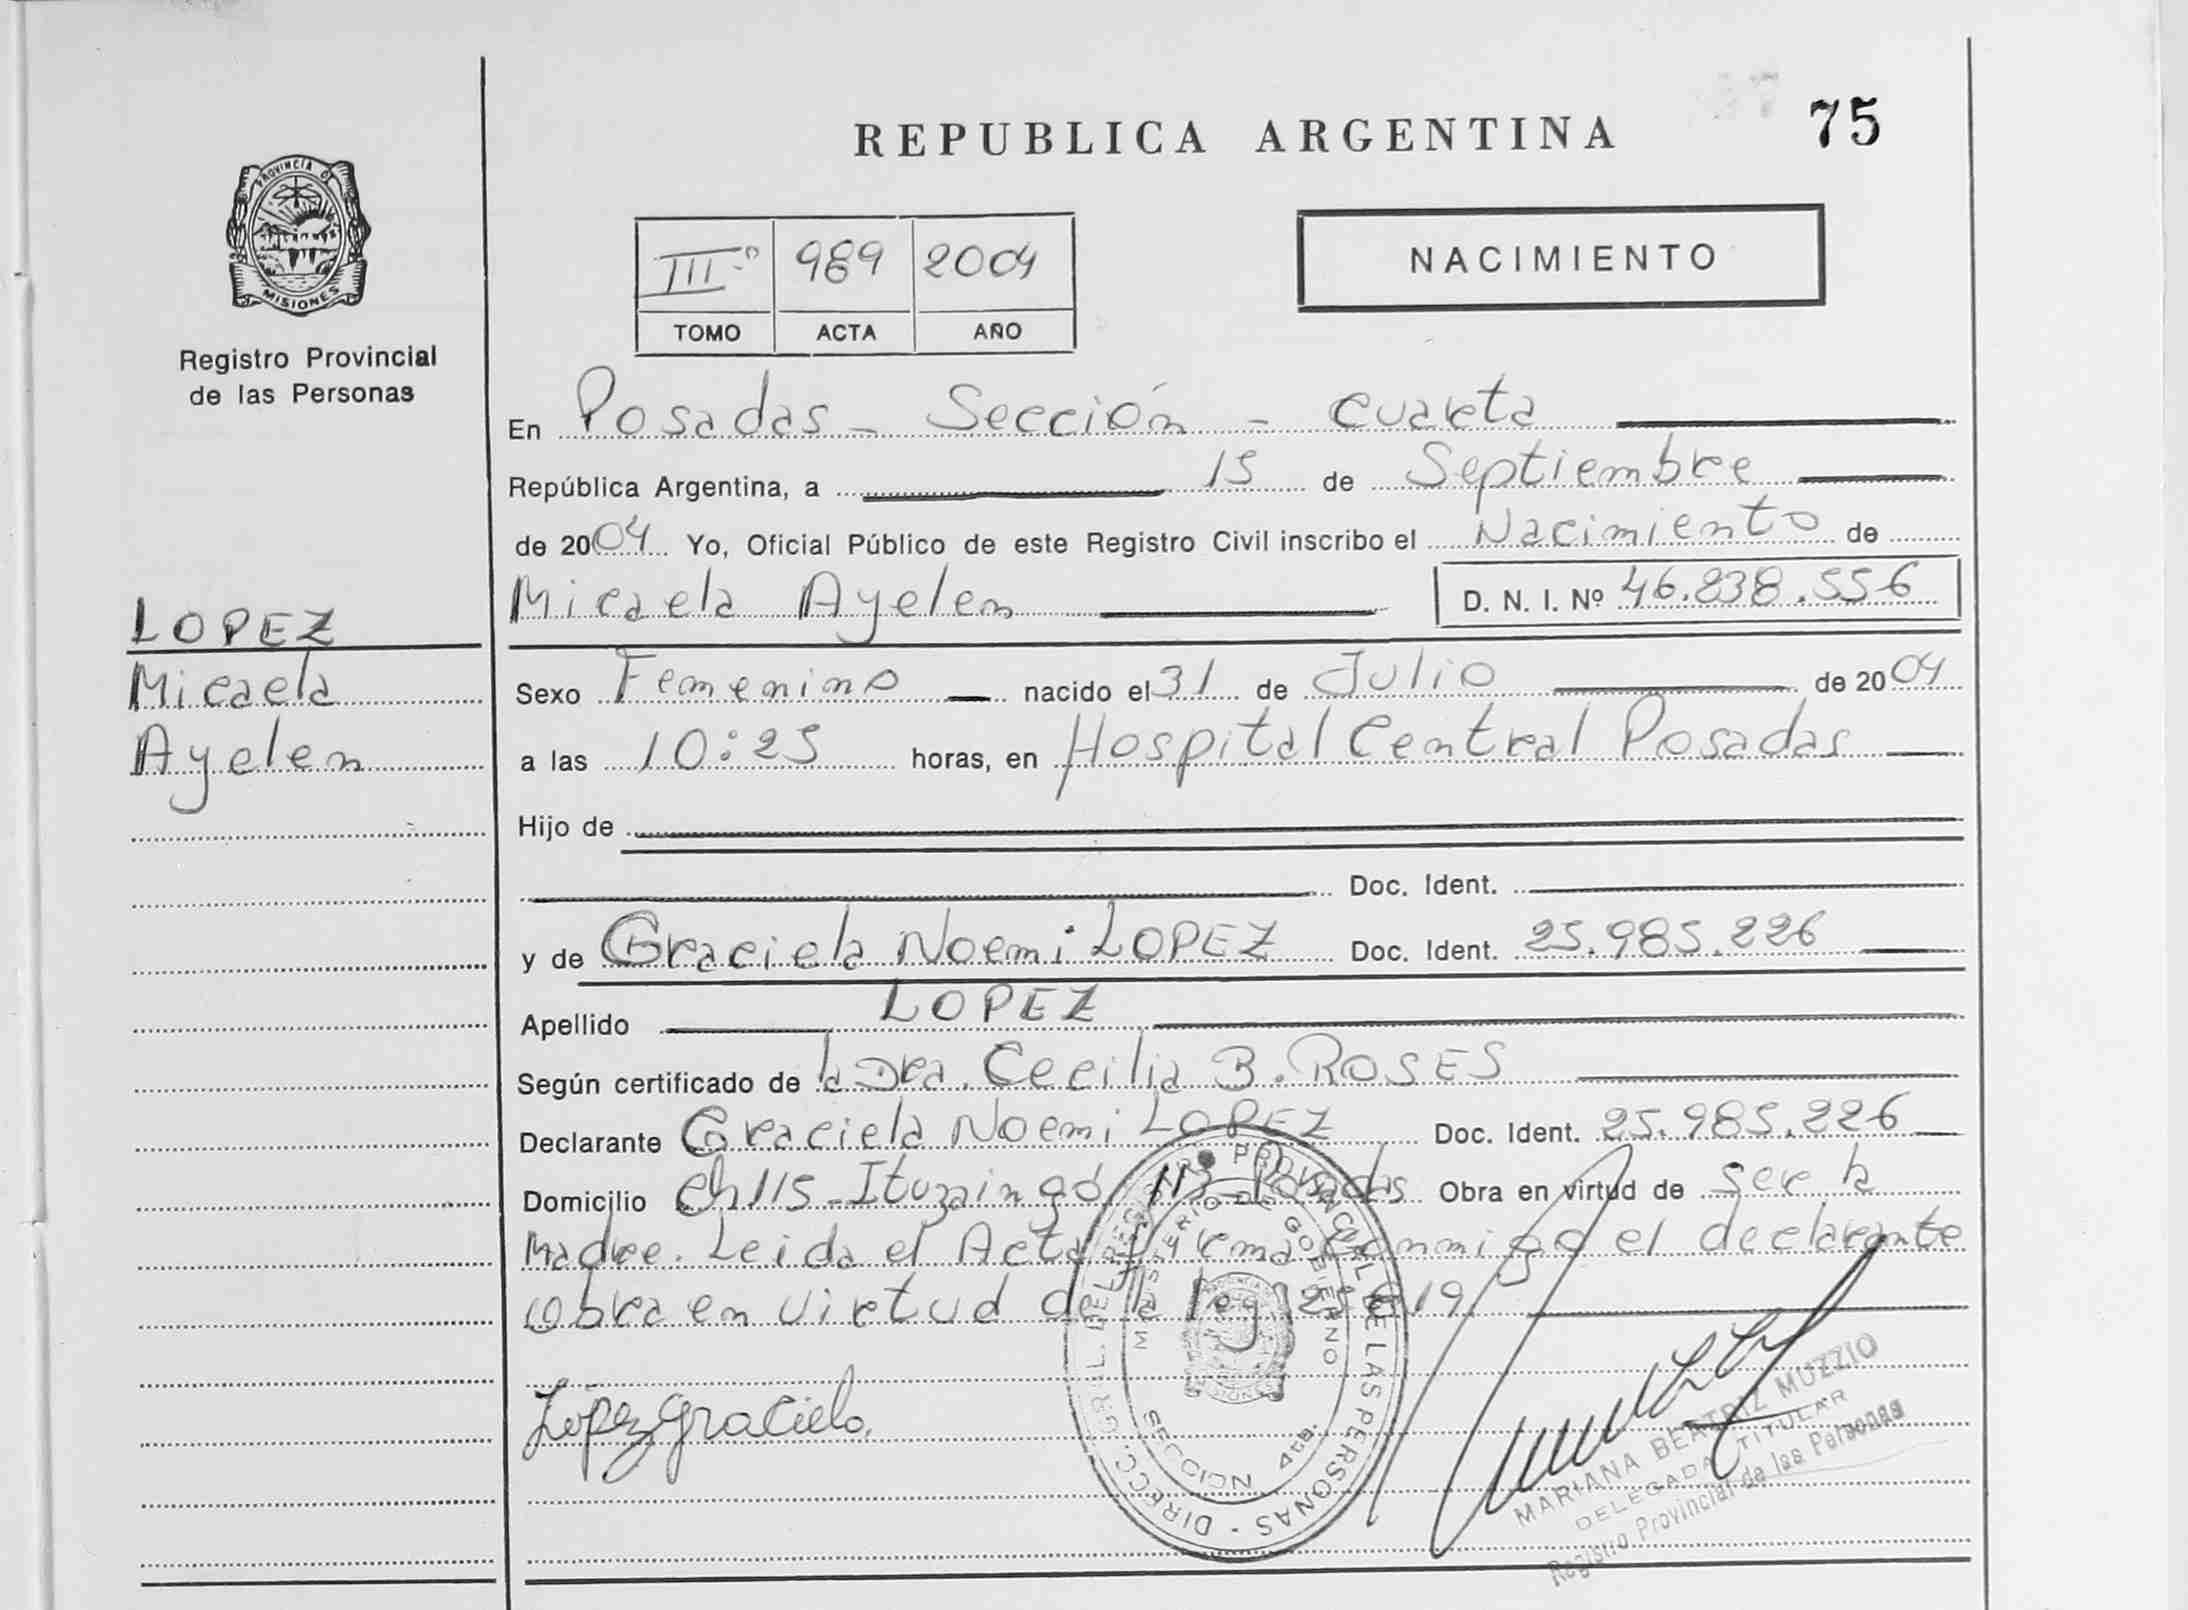 REPUBLICA ARGENTINA
75
PROVINCIA DE
MISIONES
Registro Provincial
de las Personas
III-º 989 2004
TOMO ACTA AÑO
NACIMIENTO
En Posadas - Sección - Cuarta
República Argentina, a 15 de Septiembre
de 2004 Yo, Oficial Público de este Registro Civil inscribo el Nacimiento de
Micaela Ayelen D. N. I. Nº 46.838.556
LOPEZ
Micaela
Ayelen
Sexo Femenino nacido el 31 de Julio de 2004
a las 10:25 horas, en Hospital Central Posadas
Hijo de
Doc. Ident.
y de Graciela Noemi LOPEZ Doc. Ident. 25.985.226
Apellido LOPEZ
Según certificado de la Dra. Cecilia B. ROSES
Declarante Graciela Noemi LOPEZ Doc. Ident. 25.985.226
Domicilio Ch 115 - Ituzaingó 113 - Posadas Obra en virtud de ser la
Madre. Leida el Acta Firma conmigo el declarante
Obra en virtud de la ley
Lopez Graciela.
DIRECC. GRAL. DEL REGISTRO PROVINCIAL DE LAS PERSONAS
MINISTERIO DE GOBIERNO
SECCION 4ta.
MARIANA BEATRIZ MUZZIO
DELEGADA TITULAR
Registro Provincial de las Personas